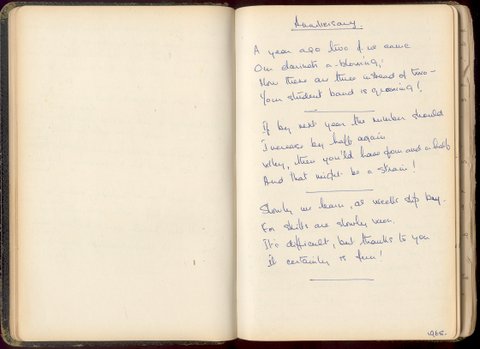 Anniversary.
A year ago two of us came
Our clarinets a-blowing;
Now there are three instead of two –
Your student band is growing!
If by next year the number should
Increase by half again
Why, then you'd have four and a half
And that might be a strain!
Slowly we learn, as weeks slip by.
For skills are slowly won.
It's difficult, but thanks to you
It certainly is fun!
1965.